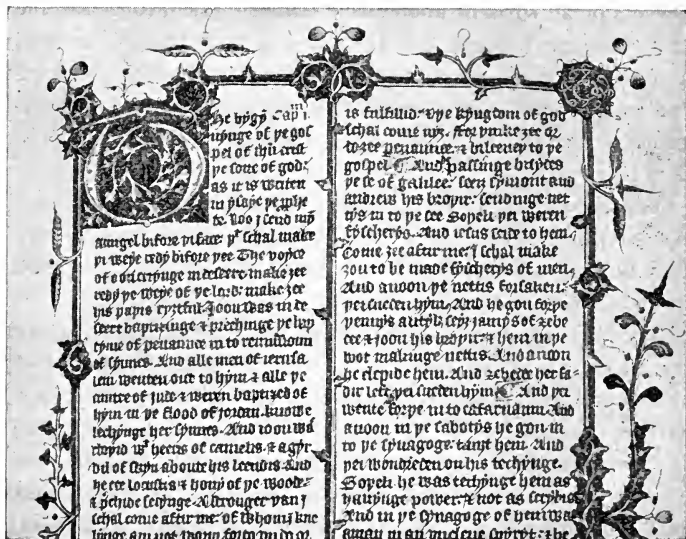 The bygyn Capm i
nynge of þe gos
pel of ihu crist
þe sone of god:
as it is writen
in ysaye þe prophe
te. Loo j send myn
aungel bifore þi face: þt schal make
þi weye redy bifore þee. The voyce
of oon cryinge in deseert: make ȝee
redy þe weye of þe lord: make ȝee
his paþis ryȝtful. Joon was in de
seert baptisinge & prechinge þe bap
tyme of penaunce in to remissioun
of synnes. And alle men of ierusa
lem wenten out to hym & alle þe
cuntre of jude & weren baptized of
hym in þe flood of jordan: knowe
lechynge her synnes. And ioon was
cloþid wt heeris of camelis & a gyr
dil of skyn aboute his leendis And
he eet locustis & hony of þe wode:
& prechide seiynge. A stronger þan j
schal come aftir me: of whom j kne
linge am not worþi forto vn do or
is fulfillid: & þe kyngdom of god
schal come niȝ. ffor þinke ȝee or
do ȝee penaunce: & bileeuey to þe
gospel. And passinge bisydes
þe se of galilee: seeȝ symont and
andrew his broþir: sendinge net
tys in to þe see Soþeli þei weren
fyscherys. And iesus seide to hem:
Come ȝee aftir me: I schal make
ȝou to be made fyscherys of men.
And anoon þe nettis forsaken:
þei sueden hym. And he gon forþe
þennys a lityl: seyȝ jamys of ȝebe
dee & joon his broþir: & hem in þe
boot makinge nettis. And anoon
he clepide hem. And ȝebedee her fa
dir left: þei sueden hym. And þei
wente forþe in to cafarnaum And
anoon in þe sabotys he gon in
to þe synagoge: tauȝt hem. And
þei wondreden on his techynge.
Soþeli he was techynge hem as
hauynge power: & not as scrybis
And in þe synagoge of hem was
a man in an vnclene spiryt: & he